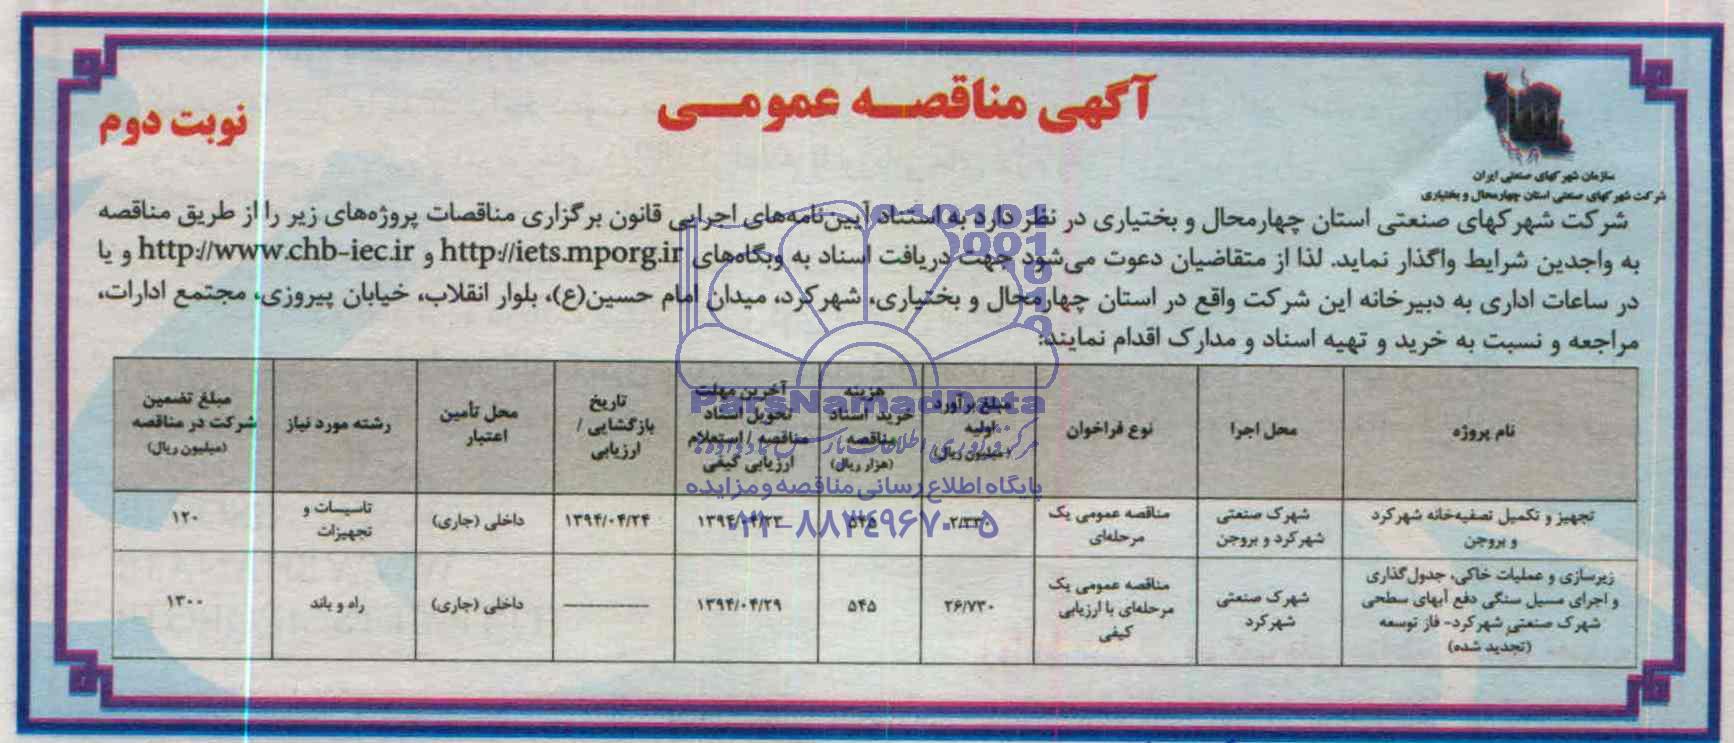 آگهی مناقصه عمومی
نوبت دوم
سازمان شهرکهای صنعتی ایران
شرکت شهرکهای صنعتی استان چهارمحال و بختیاری
شرکت شهرکهای صنعتی استان چهارمحال و بختیاری در نظر دارد به استناد آیین‌نامه‌های اجرایی قانون برگزاری مناقصات پروژه‌های زیر را از طریق مناقصه
به واجدین شرایط واگذار نماید. لذا از متقاضیان دعوت می‌شود جهت دریافت اسناد به وبگاه‌های http://iets.mporg.ir و http://www.chb-iec.ir و یا
در ساعات اداری به دبیرخانه این شرکت واقع در استان چهارمحال و بختیاری، شهرکرد، میدان امام حسین(ع)، بلوار انقلاب، خیابان پیروزی، مجتمع ادارات،
مراجعه و نسبت به خرید و تهیه اسناد و مدارک اقدام نمایند:
نام پروژه
محل اجرا
نوع فراخوان
مبلغ برآورد
اولیه
(میلیون ریال)
هزینه
خرید اسناد
مناقصه
(هزار ریال)
آخرین مهلت
تحویل اسناد
مناقصه / استعلام
ارزیابی کیفی
تاریخ
بازگشایی /
ارزیابی
محل تأمین
اعتبار
رشته مورد نیاز
مبلغ تضمین
شرکت در مناقصه
(میلیون ریال)
تجهیز و تکمیل تصفیه‌خانه شهرکرد
و بروجن
شهرک صنعتی
شهرکرد و بروجن
مناقصه عمومی یک
مرحله‌ای
۲/۳۳۰
۵۴۵
۱۳۹۴/۰۴/۲۳
۱۳۹۴/۰۴/۲۴
داخلی (جاری)
تاسیسات و
تجهیزات
۱۲۰
زیرسازی و عملیات خاکی، جدول‌گذاری
و اجرای مسیل سنگی دفع آبهای سطحی
شهرک صنعتی شهرکرد- فاز توسعه
(تجدید شده)
شهرک صنعتی
شهرکرد
مناقصه عمومی یک
مرحله‌ای با ارزیابی
کیفی
۲۶/۷۳۰
۵۴۵
۱۳۹۴/۰۴/۲۹
داخلی (جاری)
راه و باند
۱۳۰۰
ParsNamadData
مرکز فرآوری اطلاعات پارس نماد داده‌ها
پایگاه اطلاع رسانی مناقصه و مزایده
۰۲۱-۸۸۳۴۹۶۷۰-۵